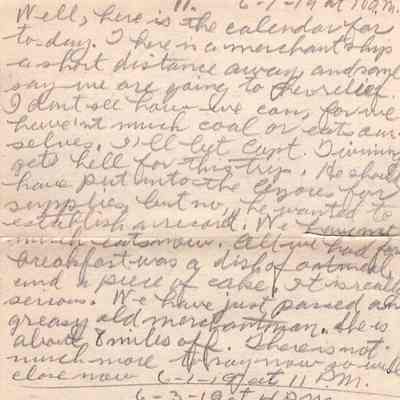 11. 6-1-19 at 10 A.M.
Well, here is the calendar for
to-day. There is a merchant ship
a short distance away and some
say we are going to her relief.
I don't see how we can, for we
haven't much coal or eats our-
selves. I'll bet Capt.
gets hell for this trip. He should
have put into the Azores for
supplies, but no, he wanted to
establish a record. We haven't
much eats now. All we had for
breakfast was a dish of oatmeal
and a piece of cake. It is really
serious. We have just passed an
greasy old merchantman. She is
about 8 miles off. There is not
much more to say now so will
close now 6-1-19 at 11 P.M.
6-3-19 at 4 P.M.